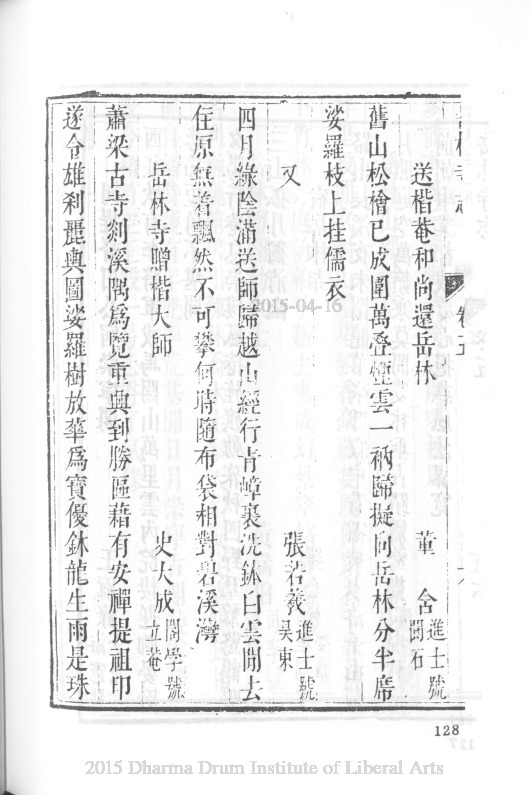 送楷菴和尚還岳林 董 舍 進士號閬石
舊山松檜已成圍萬叠煙雲一衲歸擬向岳林分半席
娑羅枝上挂儒衣
又 張若羲 進士號昊東
四月綠陰滿送師歸越山經行青嶂裏洗鉢白雲間去
住原無着飄然不可攀何時隨布袋相對碧溪灣
岳林寺贈楷大師 史大成 閣學號立菴
蕭梁古寺剡溪隅爲覽重興到勝區藉有安禪提祖印
遂令雄刹麗輿圖娑羅樹放華爲寶優鉢龍生雨是珠
128
2015-04-16
2015 Dharma Drum Institute of Liberal Arts